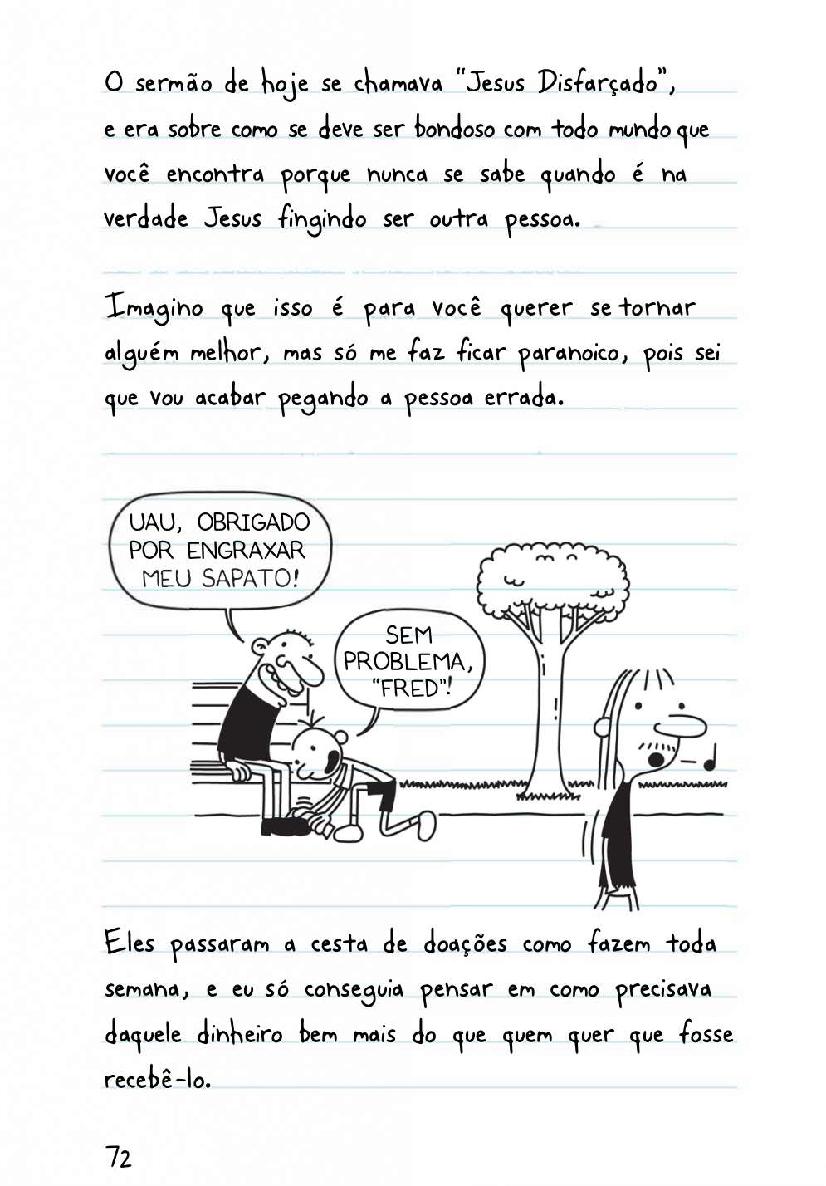 O sermão de hoje se chamava "Jesus Disfarçado",
e era sobre como se deve ser bondoso com todo mundo que
você encontra porque nunca se sabe quando é na
verdade Jesus fingindo ser outra pessoa.
Imagino que isso é para você querer se tornar
alguém melhor, mas só me faz ficar paranoico, pois sei
que vou acabar pegando a pessoa errada.
UAU, OBRIGADO
POR ENGRAXAR
MEU SAPATO!
SEM
PROBLEMA,
"FRED"!
Eles passaram a cesta de doações como fazem toda
semana, e eu só conseguia pensar em como precisava
daquele dinheiro bem mais do que quem quer que fosse
recebê-lo.
72